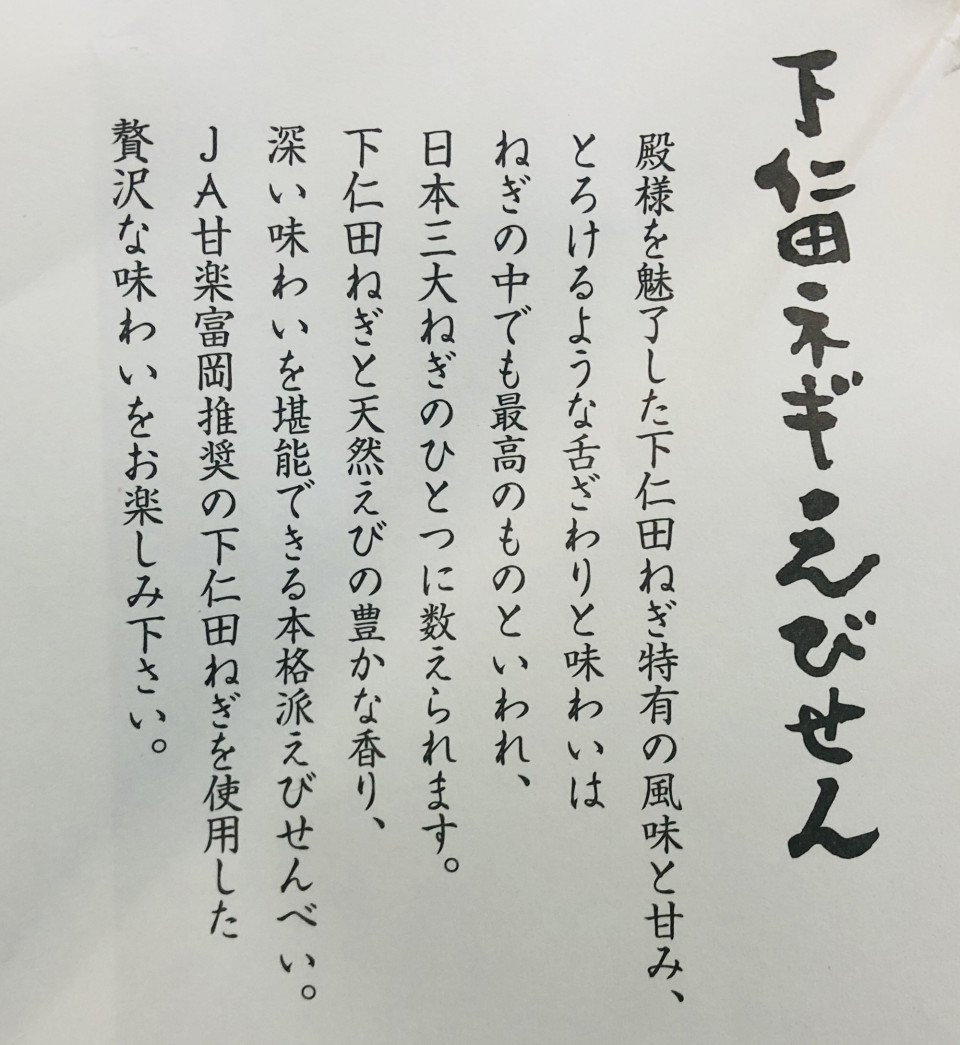 下仁田ネギえびせん
殿様を魅了した下仁田ねぎ特有の風味と甘み、
とろけるような舌ざわりと味わいは
ねぎの中でも最高のものといわれ、
日本三大ねぎのひとつに数えられます。
下仁田ねぎと天然えびの豊かな香り、
深い味わいを堪能できる本格派えびせんべい。
JA甘楽富岡推奨の下仁田ねぎを使用した
贅沢な味わいをお楽しみ下さい。